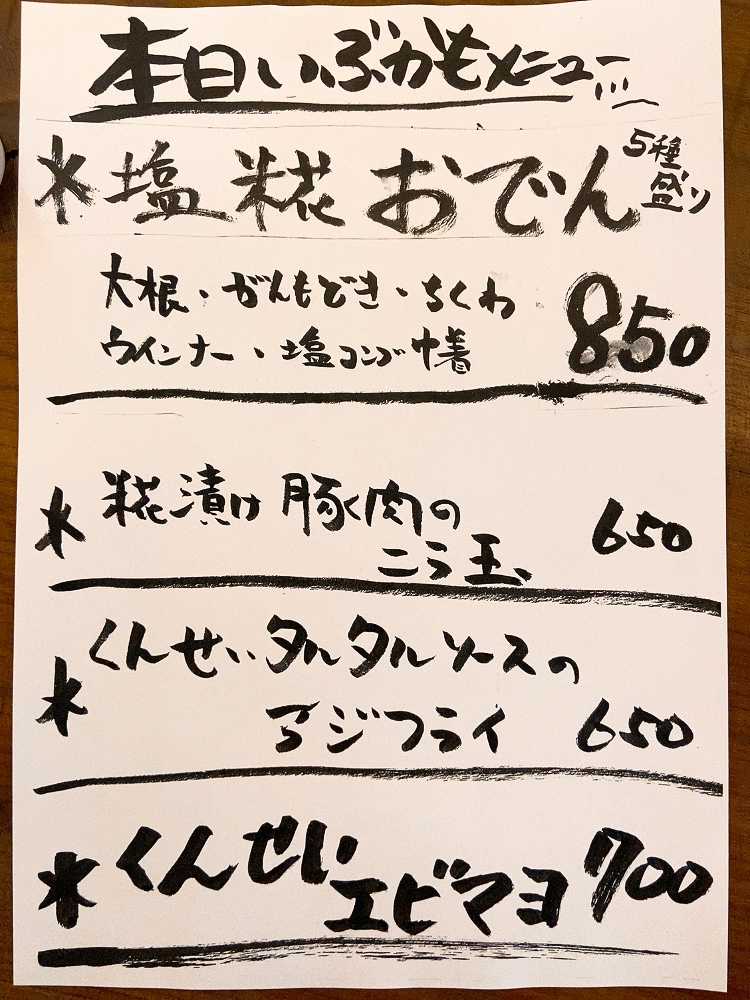 本日いぶかもメニュー
*塩糀おでん 5種盛り
大根・がんもどき・ちくわ
ウインナー・塩コンブ巾着 850
*糀漬け豚く肉の
ニラ玉 650
*くんせいタルタルソースの
アジフライ 650
*くんせい
エビマヨ 700